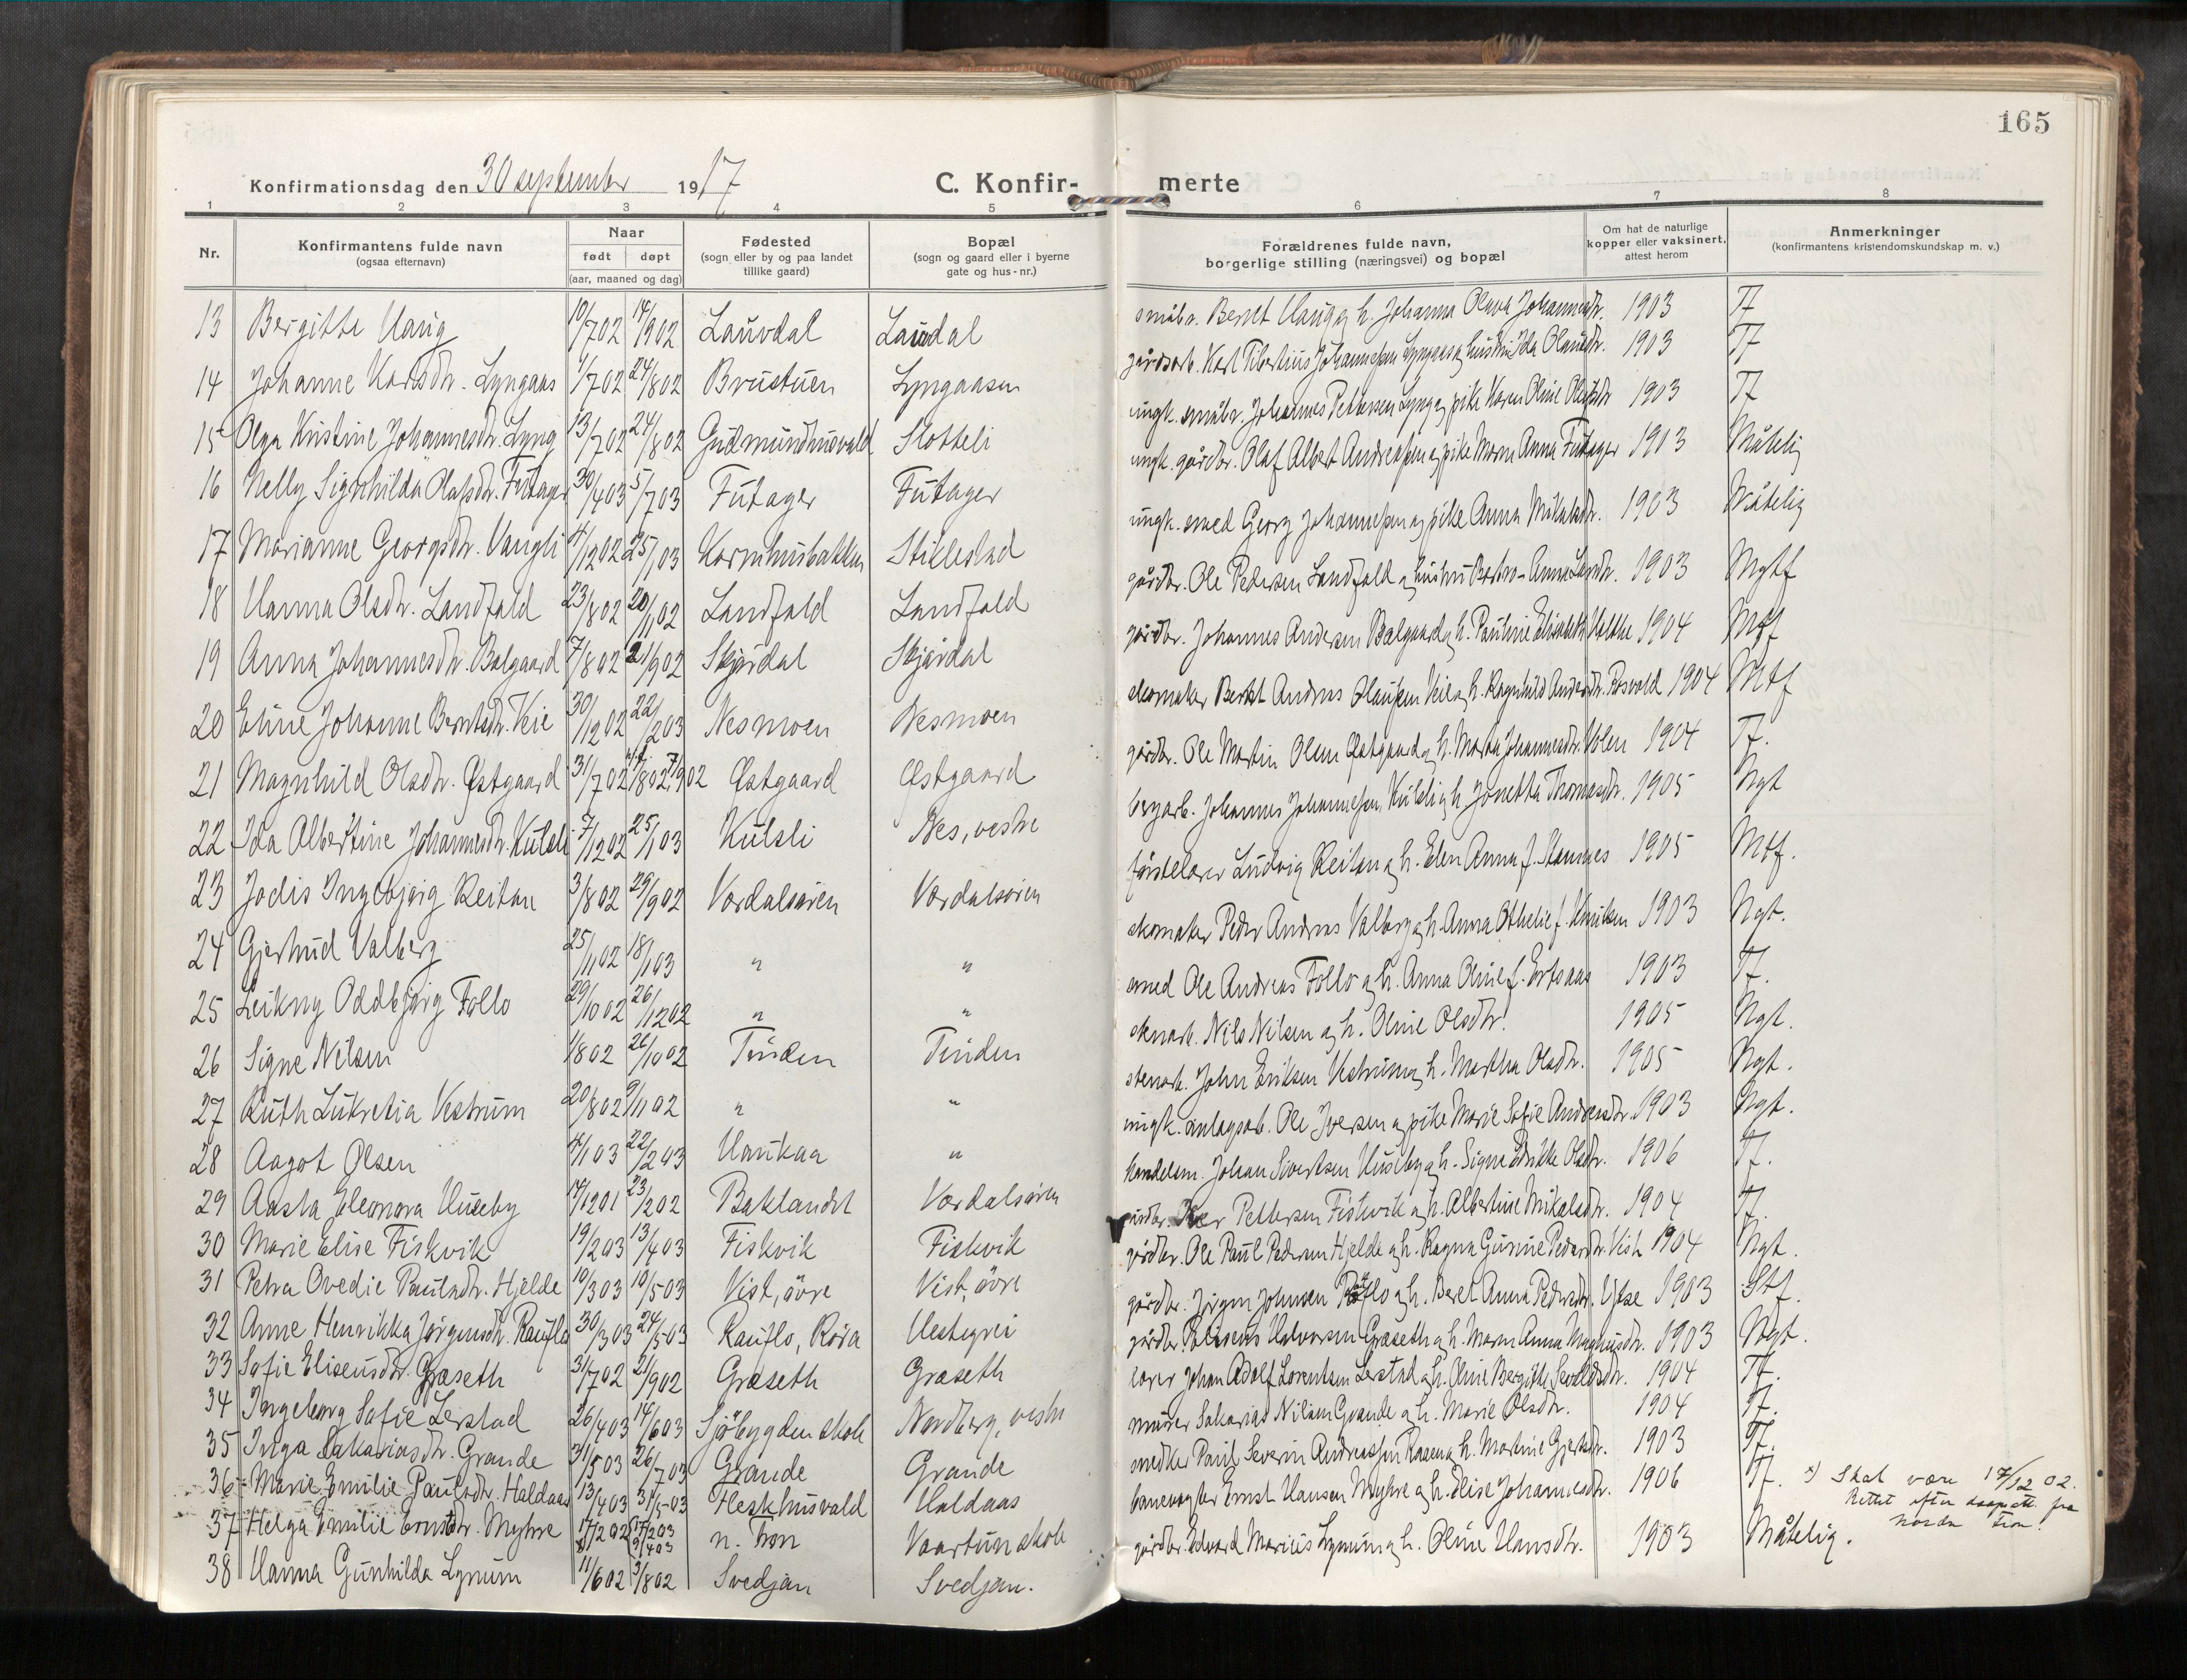 165
Konfirmationsdag den 30 september 1917
C. Konfir-merte
1 2 3 4 5 6 7 8
Nr. Konfirmantens fulde navn (ogsaa efternavn) Naar født døpt (aar, maaned og dag) Fødested (sogn eller by og paa landet tillike gaard) Bopæl (sogn og gaard eller i byerne gate og hus-nr.) Forældrenes fulde navn, borgerlige stilling (næringsvei) og bopæl Om hat de naturlige kopper eller vaksinert, attest herom Anmerkninger (konfirmantens kristendomskundskap m. v.)
13 Bergitte Haug 10/7 02 14/9 02 Lauvdal Lauvdal småbr. Berndt Haug og h. Johanna Olava Johannesdr. 1903 Tf
14 Johanne Karlsdr. Lyngaas 1/7 02 24/8 02 Brustuen Lyngaasen gårdsarb. Karl Tibertius Johannessen Lyngaas og hustru Ida Olausdr. 1903 Tf
15 Olga Kristine Johannesdr. Lyng 13/7 02 24/8 02 Gudmundhusvald Slotteli ungk. småbr. Johannes Pettersen Lyng og pike Karen Oline Olausdr 1903 Tf
16 Nelly Signhilda Olafsdr. Futager 30/4 03 5/7 03 Futager Futager ungk. gårdbr. Olaf Albert Andreassen og pike Maren Anna Futager 1903 Måtelig
17 Marianne Georgsdr. Haugli 4/12 02 25/1 03 Kornhusbakken Stiklestad ungk. smed Georg Johannessen og pike Anna Mikalsdr. 1903 Måtelig
18 Hanna Olsdr. Landfald 23/8 02 20/11 02 Landfald Landfald gårdbr. Ole Pedersen Landfald og hustru Anna Larsdr. 1903 Mgtf
19 Anna Johannesdr. Balgaard 7/8 02 21/9 02 Skjördal Skjördal gårdbr. Johannes Andersen Balgaard og h. Pauline Elisabeth Holthe 1904 Mtf
20 Eline Johanne Berntsdr. Veie 30/12 02 22/2 03 Nesmoen Nesmoen skomaker Bernt Andreas Olaussen Veie og h. Ragnhild Andersdr. Rosvold 1904 Mtf
21 Magnhild Olsdr. Østgaard 31/7 02 7/9 02 Østgaard Østgaard gårdbr. Ole Martin Olsen Østgaard og h. Marta Johannesdr. Volen 1904 Tf.
22 Ida Albertine Johannesdr. Kulsli 7/12 02 25/1 03 Kulsli Nes, vestre bergarb. Johannes Johannessen Kulsli og h. Jonetta Thomasdr. 1905 Ngt
23 Jodis Ingebjørg Reitan 3/8 02 29/9 02 Værdalsøren Værdalsøren förstelærer Ludvig Reitan og h. Elen Anna f. Stamnes 1905 Mtf.
24 Gjertrud Valberg 25/11 02 18/1 03 " " skomaker Peder Andreas Valberg og h. Anna Othelie f. Henriksen 1903 Ngt.
25 Leikny Oddbjørg Follo 29/10 02 26/12 02 " " smed Ole Andreas Follo og h. Anna Oline f. Ertsaas 1903 Tf.
26 Signe Nilsen 1/8 02 26/10 02 Tinden Tinden stenarb. Nils Nilsen og h. Oline Olsdtr. 1905 Ngt.
27 Ruth Lukretia Vestrum 20/8 02 9/11 02 " " stenarb. John Eriksen Vestrum og h. Martha Olsdr. 1905 Ngt.
28 Aagot Olsen 4/1 03 22/2 03 Haukaa " ungk. anlagsarb. Ole Iversen og pike Marie Sofie Andreasdr. 1903 Ngt.
29 Aasta Eleonora Huseby 14/12 01 23/2 02 Baklandet Værdalsøren handelsm. Johan Sivertsen Huseby og h. Signe Olsdr. 1906 Tf.
30 Marie Elise Fiskvik 19/2 03 13/4 03 Fiskvik Fiskvik gårdbr. Peter Pettersen Fiskvik og h. Albertine Mikalsdr. 1904 Tf.
31 Petra Ovedie Paulsdr. Hjelde 10/3 03 10/5 03 Vist, övre Vist, övre gårdbr. Ole Paul Pedersen Hjelde og h. Ragna Gurine Pedersdr. Vist 1904 Ngt.
32 Anne Henrikka Jørgensdr. Rauflo 30/3 03 24/5 03 Rauflo, Röra Hestegrei gårdbr. Jørgen Johnsen Rauflo og h. Beret Anna Pedersdr. 1903 Stf.
33 Sofie Eliseusdr. Græseth 31/7 02 21/9 02 Græseth Græseth gårdbr. Eliseus Halvorsen Græseth og h. Maren Anna Magnusdr. 1903 Ngt.
34 Ingeborg Sofie Lerstad 26/4 03 14/6 03 Sjöbygden skole Nordberg, vestre lærer Johan Adolf Lorentsen Lerstad og h. Oline Bergitte Sevaldsdr. 1904 Tf.
35 Inga Sakariasdr. Grande 31/5 03 26/7 03 Grande Grande murer Sakarias Nilsen Grande og h. Marie Olsdr. 1904 Tf.
36 Marie Emilie Paulsdr. Haldaas 13/4 03 31/5 03 Fleskhusvald Haldaas snedker Paul Severin Andreassen Raaen og h. Martine Gjertsdr. 1903 Tf.
37 Helga Emilie Ernstdr. Myhre 17/2 02 n. Fron Vaartun skole banevogter Ernst Hansen Myhre og h. Elise Johannesdr. 1906 Tf. x) Skal være 17/12 02.
Rettet efter daapsatt. fra
nordre Fron.
38 Hanna Gunhilda Lynum 11/6 02 3/8 02 Svedjan Svedjan. gårdbr. Edvard Marius Lynum og h. Oline Hansdtr. 1903 Måtelig.